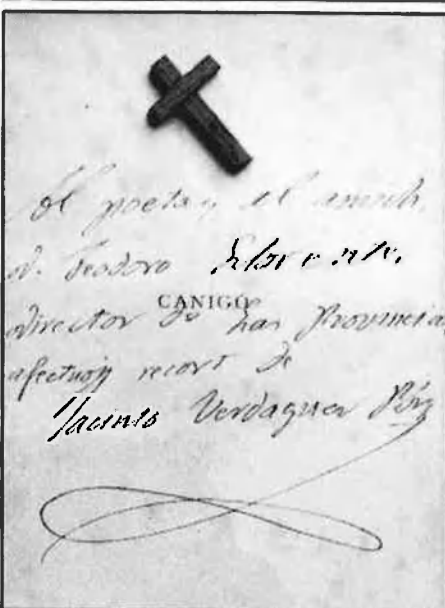 Al poeta y al amich
D. Teodoro Llorente,
CANIGÓ
director de Las Provincias
afectuós recort de
Jacinto Verdaguer Pbre